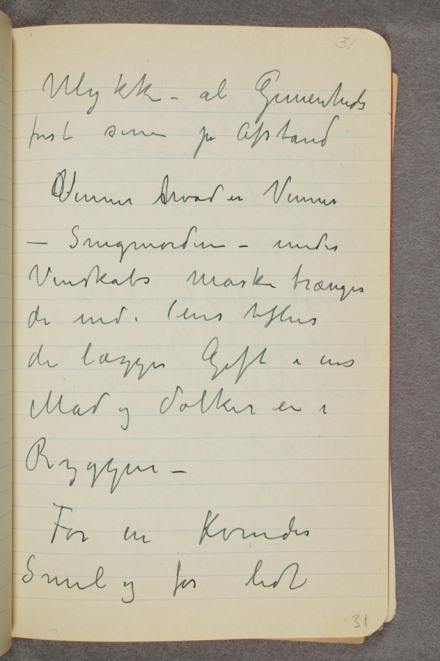 31
Ulykke – al Gemenheds
først sene på Afstand
Venner hvad er Venner
– Snigmordere – under
Venskabs maske trænger
de ind i ens
de lægger Gift i ens
Mad og dolker en i
Ryggen –
For en Kvindes
Smil og for lidt
31